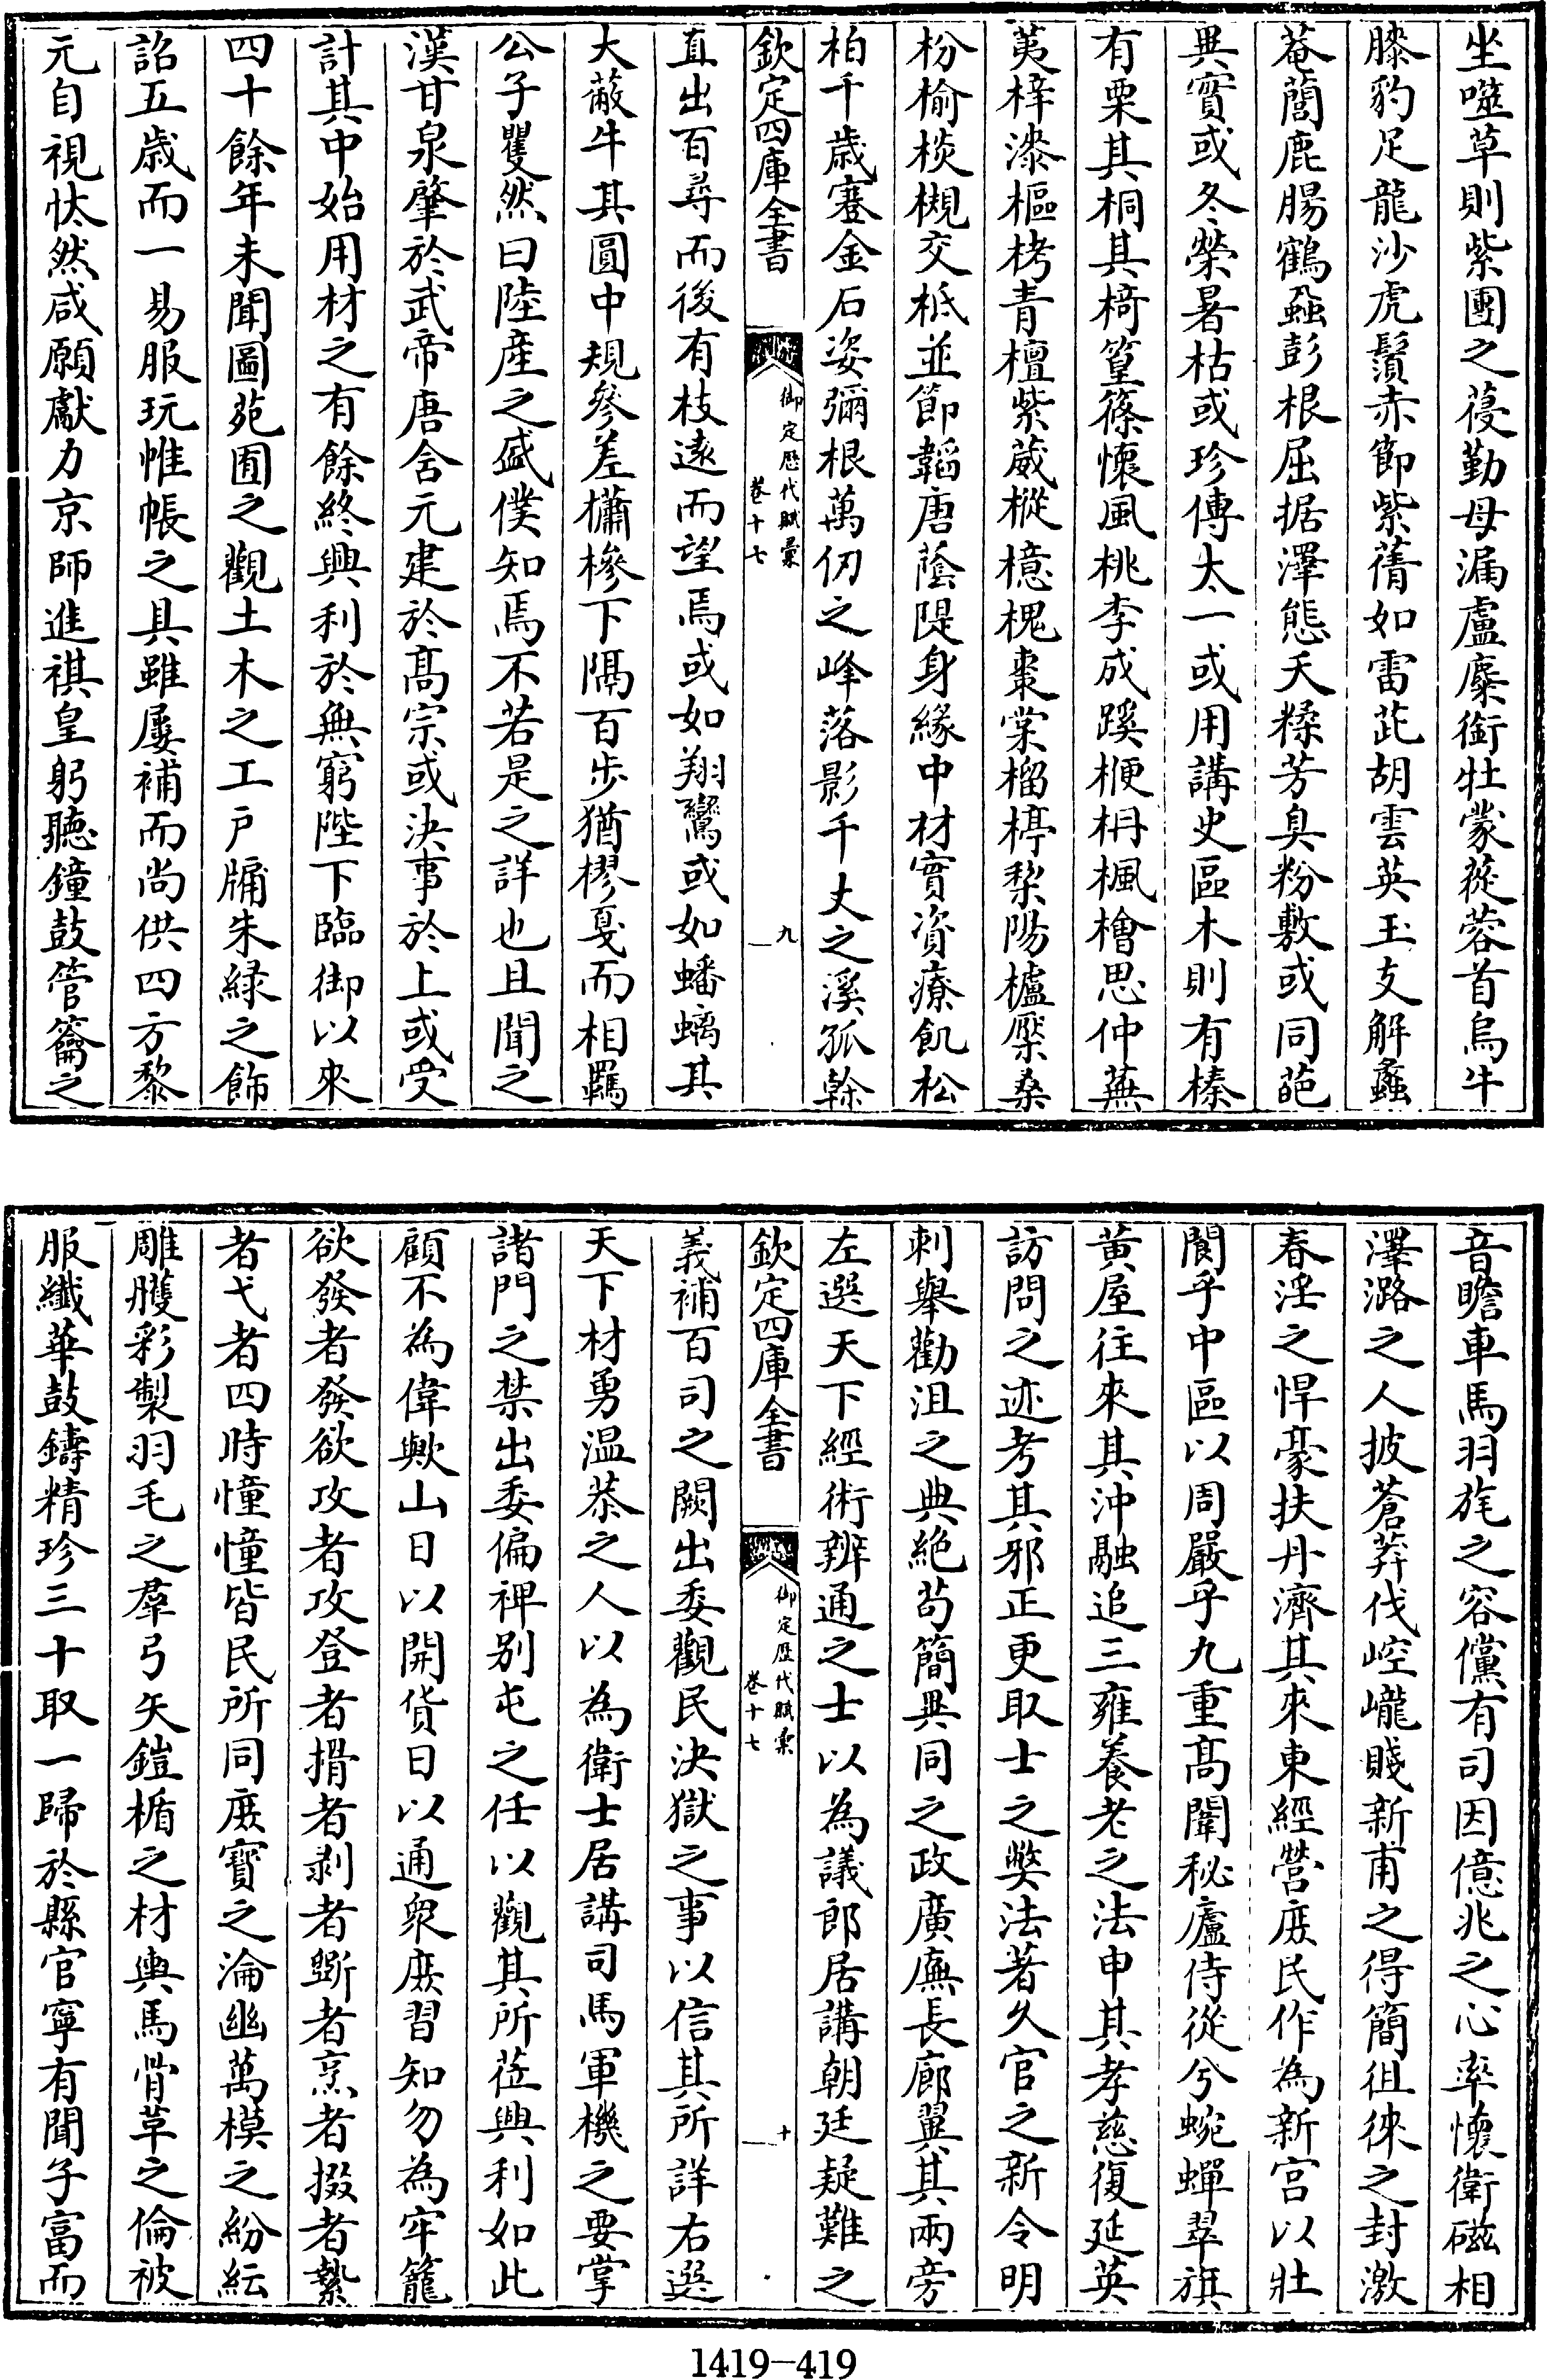 坐噬草則紫團之葠勤母漏盧麋銜牡蒙蓯蓉首烏牛
膝豹足龍沙虎鬚赤節紫蒨如雷芘胡雲英玉支解蠡
菴䕡鹿腸鶴蝨彭根屈据澤態夭糅芳臭粉敷或同葩
異實或冬榮暑枯或珍傳太一或用講史區木則有榛
有栗其桐其椅篁篠懷風桃李成蹊楩柟楓檜思仲蕪
荑梓漆樞栲青檀紫葳樅檍槐棗棠榴楟棃陽櫨檿桑
枌榆棪櫬交柢並節韜唐蔭隄身緣中材實資療飢松
柏千歲蹇金石姿彌根萬仞之峰落影千丈之溪孤榦
欽定四庫全書
御定歷代賦彙
卷十七
九
直出百尋而後有枝遠而望焉或如翔鸞或如蟠螭其
大蔽牛其圓中規參差橚槮下隔百步猶樛戛而相羈
公子矍然曰陸產之盛僕知焉不若是之詳也且聞之
漢甘泉肇於武帝唐含元建於高宗或決事於上或受
計其中始用材之有餘終興利於無窮陛下臨御以來
四十餘年未聞圖苑囿之觀土木之工戶牗朱緑之飾
詔五歲而一易服玩帷帳之具雖屢補而尚供四方黎
元自視怢然咸願獻力京師進祺皇躬聽鐘鼓管籥之
音瞻車馬羽旄之容儻有司因億兆之心率懷衛磁相
澤潞之人披蒼莽伐崆巄賤新甫之得簡徂徠之封激
春淫之悍豪扶丹濟其來東經營庶民作為新宮以壯
閬乎中區以周嚴乎九重高闈秘廬侍從兮蜿蟬翠旗
黃屋往來其沖融追三雍養老之法申其孝慈復延英
訪問之迹考其邪正更取士之獘法著久官之新令明
刺舉勸沮之典絕茍簡異同之政廣廡長廊翼其兩旁
左選天下經術辨通之士以為議郎居講朝廷疑難之
欽定四庫全書
御定歷代賦彙
卷十七
十
義補百司之闕出委觀民決獄之事以信其所詳右選
天下材勇溫恭之人以為衛士居講司馬軍機之要掌
諸門之禁出委偏裨別屯之任以觀其所莅興利如此
顧不為偉歟山日以開貨日以通衆庶習知勿為牢籠
欲發者發欲攻者攻登者搰者剝者斲者烹者掇者縶
者弋者四時憧憧皆民所同庶寶之淪幽萬模之紛紜
雕雘彩製羽毛之羣弓矢鎧楯之材輿馬骨草之倫被
服纖華鼓鑄精珍三十取一歸於縣官寧有聞子富而
1419-419